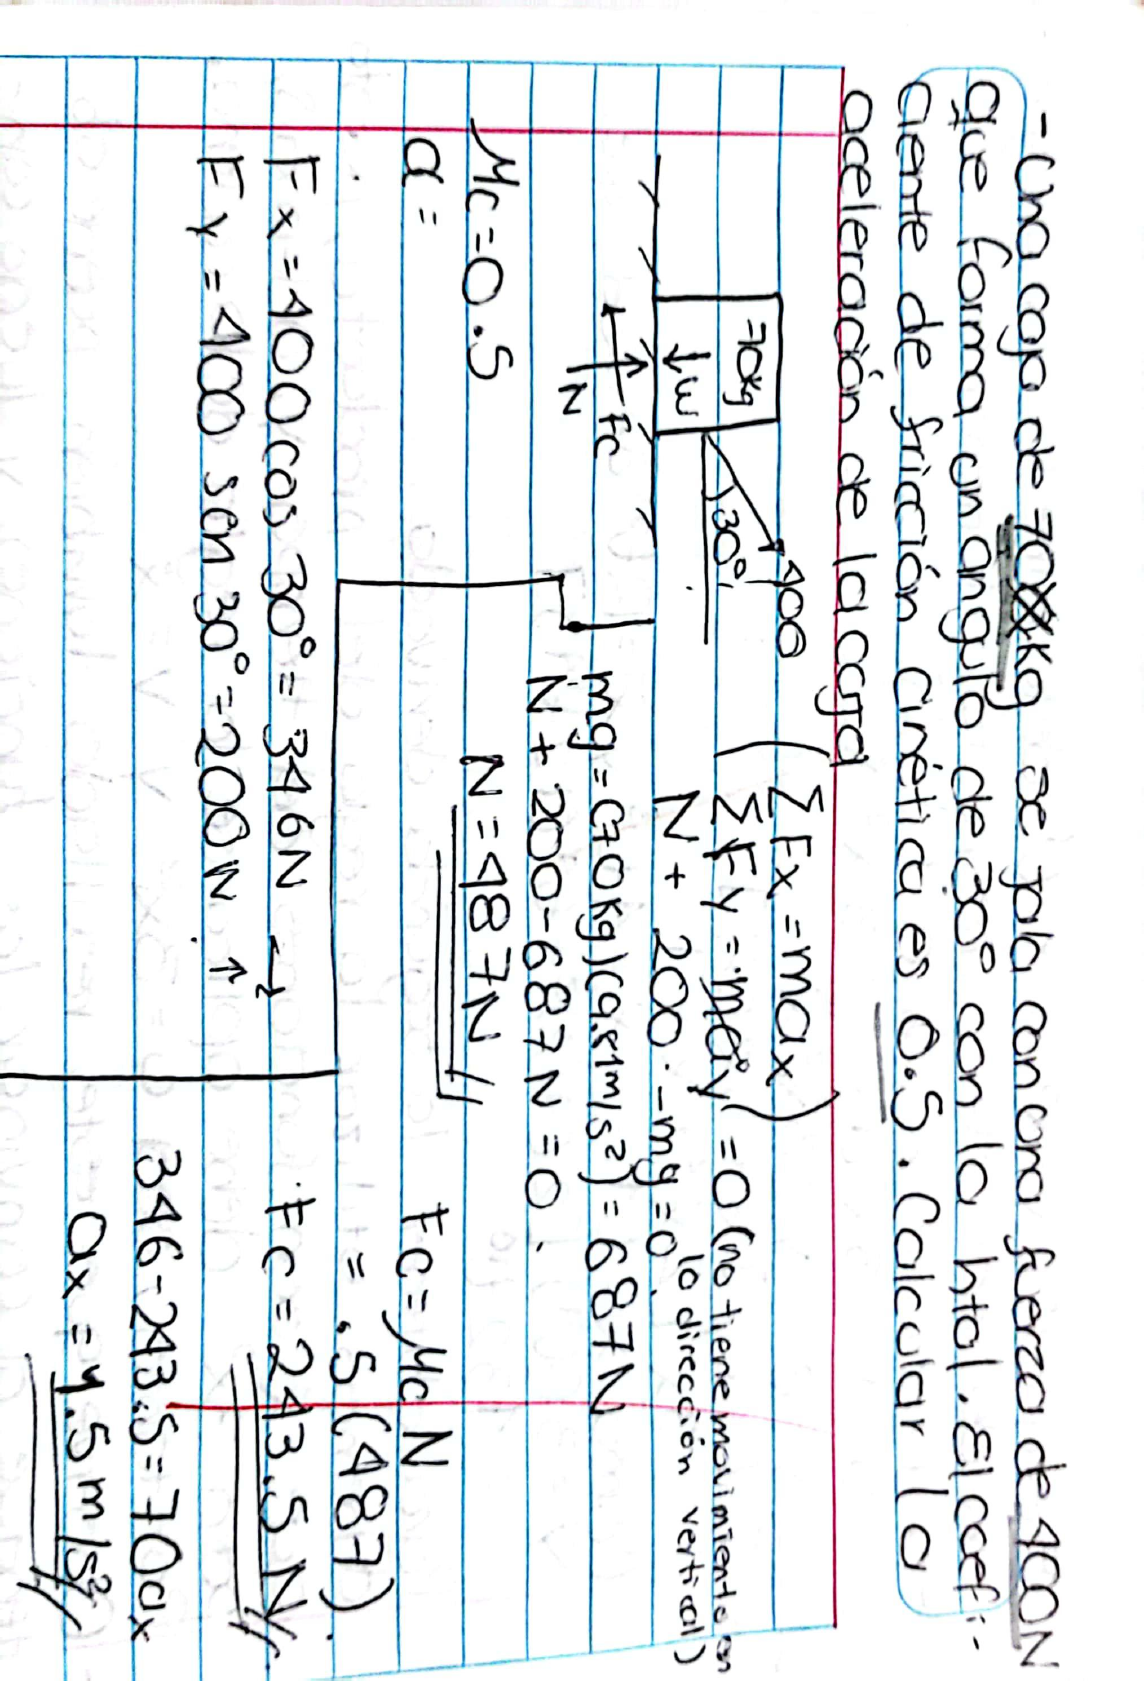 - Una caja de 70 kg se jala con una fuerza de 400N
que forma un angulo de 30° con la htal. El coefi-
ciente de fricción cinética es 0.5. Calcular la
aceleración de la caja
70kg
W
30°
400
Fc
N
μc = 0.5
a =
Fx = 400 cos 30° = 346N →
Fy = 400 sen 30° = 200N ↑
(ΣFx = max
ΣFy = may = 0 (no tiene movimiento en
la dirección vertical)
N + 200 - mg = 0
mg = (70kg)(9.81m/s²) = 687N
N + 200 - 687N = 0.
N = 487N
Fc = μc N
= .5 (487)
Fc = 243.5 N
346 - 243.5 = 70ax
ax = 1.5 m/s²